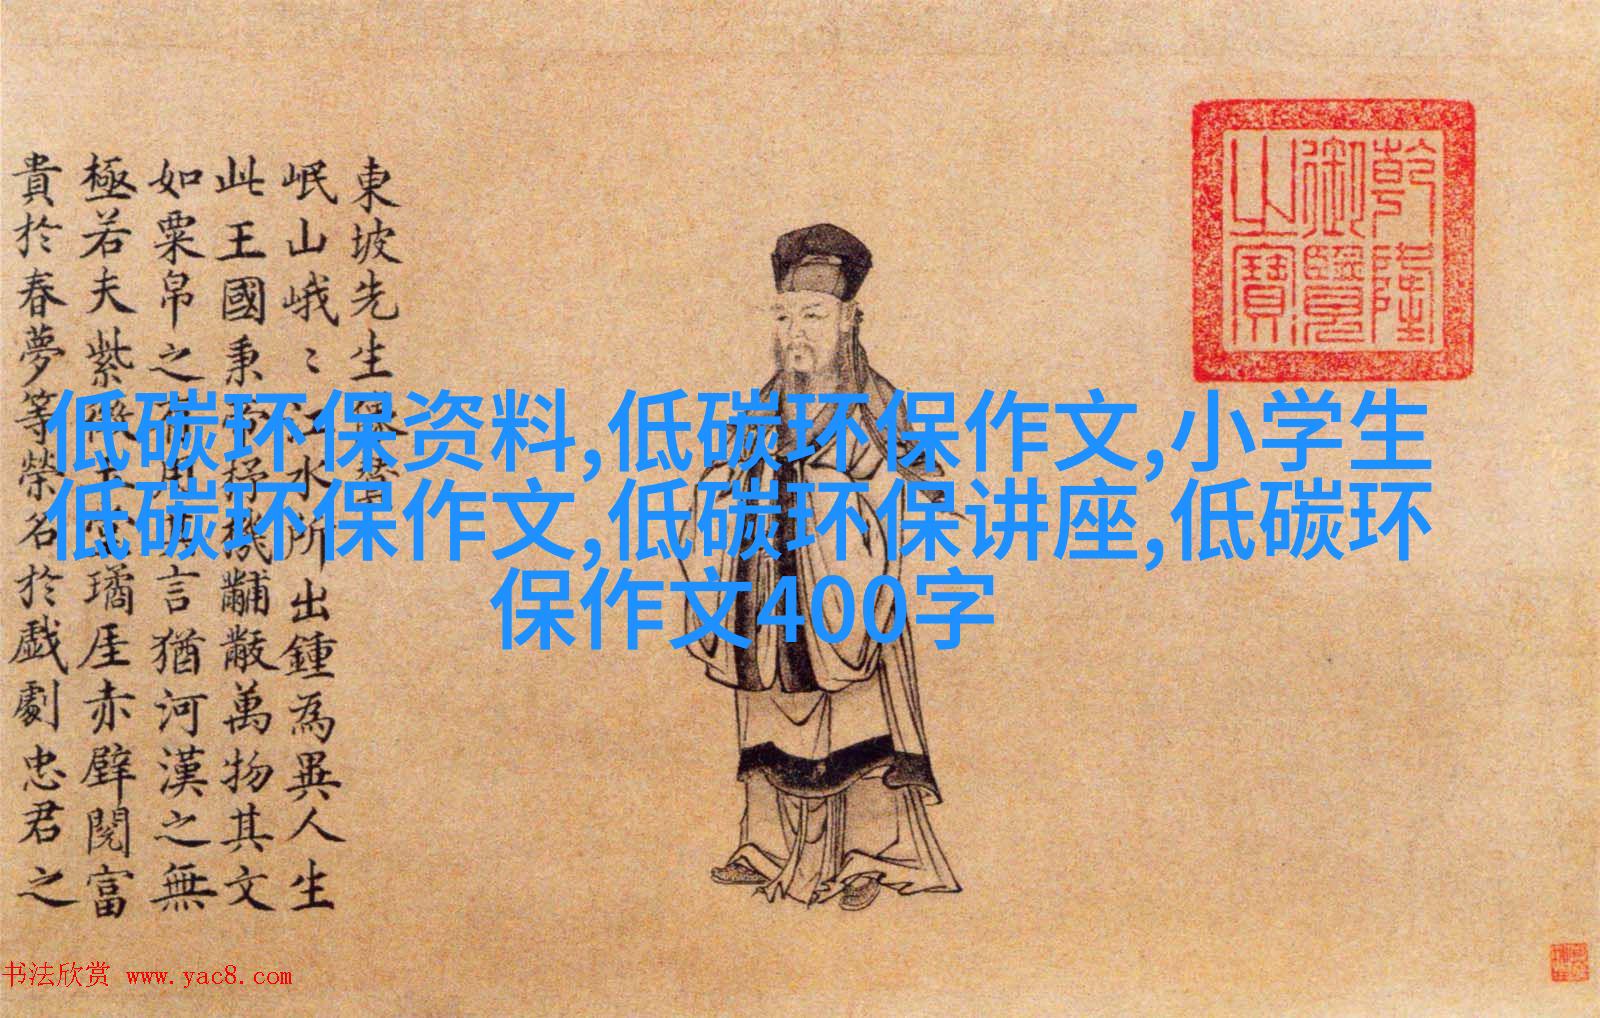 東坡先生
岷山峨〻江水所出鍾為異人生
此王國秉帝杼機黼黻萬物其文
如粟帛之有用其言猶河漢之無
極若夫紫微玉堂璚厓赤壁閱富
貴於春夢等榮名於戲劇忠君之
乾隆
御覽
之寶
低碳环保资料,低碳环保作文,小学生
低碳环保作文,低碳环保讲座,低碳环
保作文400字
书法欣赏 www.yac8.com